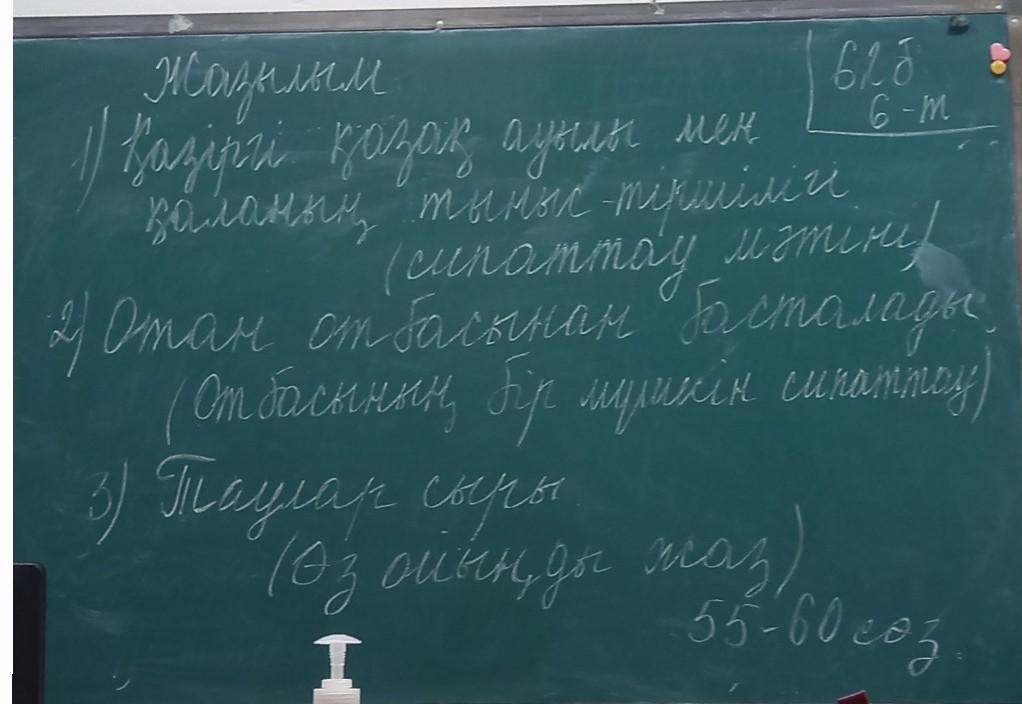 Жазылым
62б
6-т
1) Қазіргі қазақ ауылы мен
қаланың тыныс-тіршілігі
(сипаттау мәтіні)
2) Отан отбасынан басталады.
(Отбасының бір мүшесін сипаттау)
3) Таулар сыры
(Өз ойыңды жаз)
55-60 сөз.